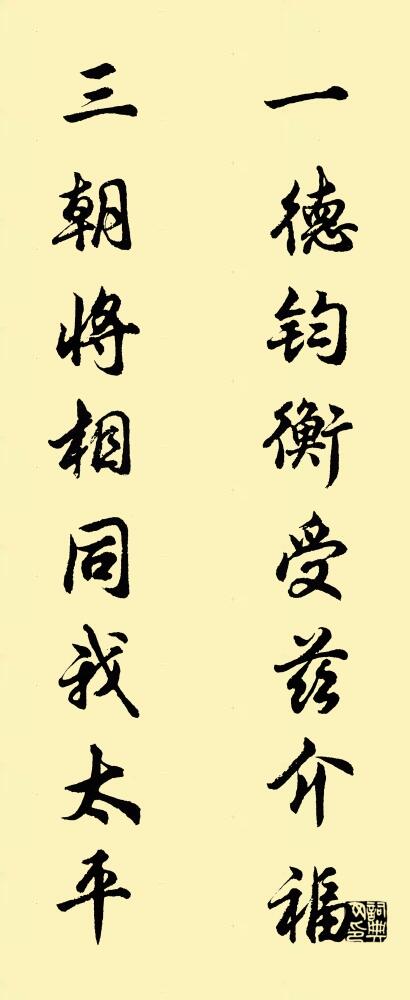 一德钧衡受兹介福
三朝将相同我太平